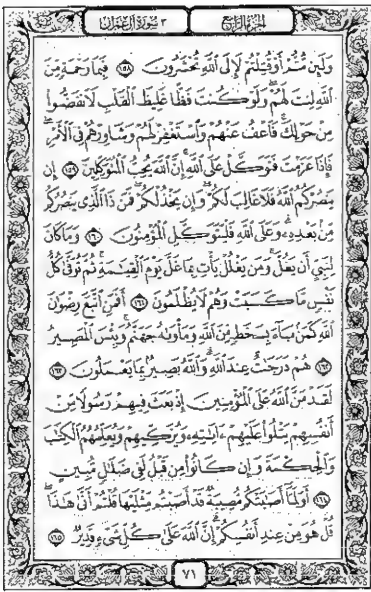 الجزء الرابع
٣ سورة آل عمران
وَلَئِن مُّتُّمْ أَوْ قُتِلْتُمْ لَإِلَى ٱللَّهِ تُحْشَرُونَ ١٥٨ فَبِمَا رَحْمَةٍ مِّنَ
ٱللَّهِ لِنتَ لَهُمْ وَلَوْ كُنتَ فَظًّا غَلِيظَ ٱلْقَلْبِ لَٱنفَضُّوا۟
مِنْ حَوْلِكَ فَٱعْفُ عَنْهُمْ وَٱسْتَغْفِرْ لَهُمْ وَشَاوِرْهُمْ فِى ٱلْأَمْرِ
فَإِذَا عَزَمْتَ فَتَوَكَّلْ عَلَى ٱللَّهِ إِنَّ ٱللَّهَ يُحِبُّ ٱلْمُتَوَكِّلِينَ ١٥٩ إِن
يَنصُرْكُمُ ٱللَّهُ فَلَا غَالِبَ لَكُمْ وَإِن يَخْذُلْكُمْ فَمَن ذَا ٱلَّذِى يَنصُرُكُم
مِّنۢ بَعْدِهِۦ وَعَلَى ٱللَّهِ فَلْيَتَوَكَّلِ ٱلْمُؤْمِنُونَ ١٦٠ وَمَا كَانَ
لِنَبِىٍّ أَن يَغُلَّ وَمَن يَغْلُلْ يَأْتِ بِمَا غَلَّ يَوْمَ ٱلْقِيَٰمَةِ ثُمَّ تُوَفَّىٰ كُلُّ
نَفْسٍ مَّا كَسَبَتْ وَهُمْ لَا يُظْلَمُونَ ١٦١ أَفَمَنِ ٱتَّبَعَ رِضْوَٰنَ
ٱللَّهِ كَمَنۢ بَآءَ بِسَخَطٍ مِّنَ ٱللَّهِ وَمَأْوَىٰهُ جَهَنَّمُ وَبِئْسَ ٱلْمَصِيرُ
١٦٢ هُمْ دَرَجَٰتٌ عِندَ ٱللَّهِ وَٱللَّهُ بَصِيرٌۢ بِمَا يَعْمَلُونَ ١٦٣
لَقَدْ مَنَّ ٱللَّهُ عَلَى ٱلْمُؤْمِنِينَ إِذْ بَعَثَ فِيهِمْ رَسُولًا مِّنْ
أَنفُسِهِمْ يَتْلُوا۟ عَلَيْهِمْ ءَايَٰتِهِۦ وَيُزَكِّيهِمْ وَيُعَلِّمُهُمُ ٱلْكِتَٰبَ
وَٱلْحِكْمَةَ وَإِن كَانُوا۟ مِن قَبْلُ لَفِى ضَلَٰلٍ مُّبِينٍ
١٦٤ أَوَلَمَّآ أَصَٰبَتْكُم مُّصِيبَةٌ قَدْ أَصَبْتُم مِّثْلَيْهَا قُلْتُمْ أَنَّىٰ هَٰذَا
قُلْ هُوَ مِنْ عِندِ أَنفُسِكُمْ إِنَّ ٱللَّهَ عَلَىٰ كُلِّ شَىْءٍ قَدِيرٌ ١٦٥
٧١